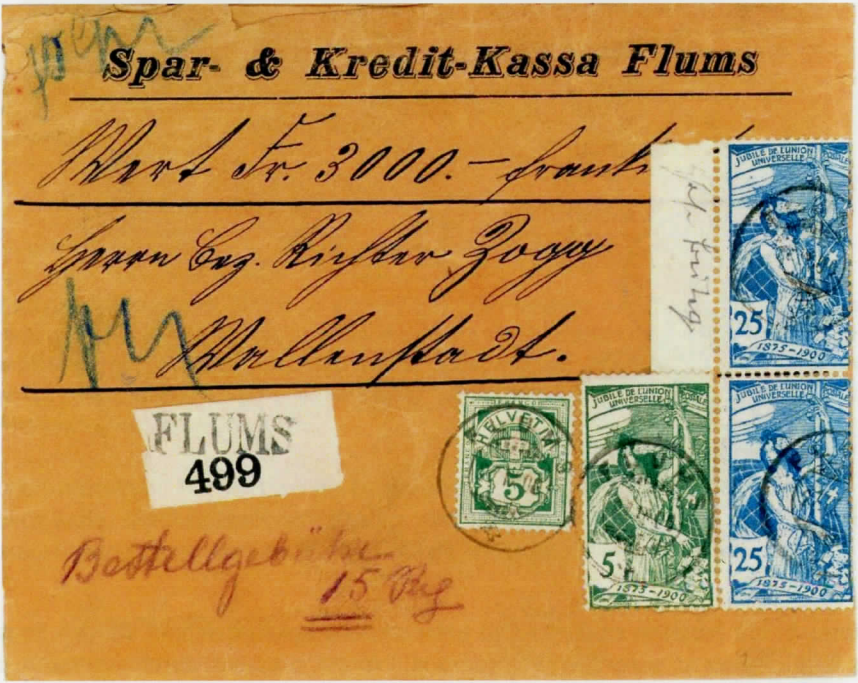 Spar- & Kredit-Kassa Flums
Wert Fr. 3000.- frank
Herrn Bez. Richter Zogg
Wallenstadt.
JUBILÉ DE L'UNION
UNIVERSELLE
25
1875-1900
FLUMS
499
HELVETIA
5
JUBILÉ DE L'UNION
UNIVERSELLE POSTALE
5
1875-1900
JUBILÉ DE L'UNION
UNIVERSELLE
25
1875-1900
Bestellgebühr
15 Rp